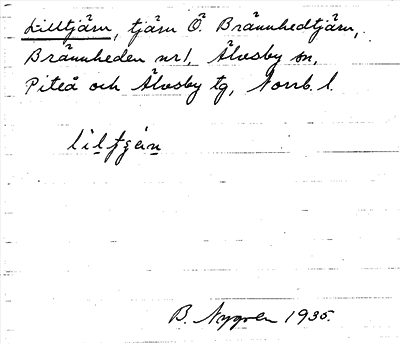 Lilltjärn, tjärn Ö. Brännhedtjärn,
Brännheden nr 1, Älvsby sn,
Piteå och Älvsby tg, Norrb. l.
liltjän
B. Nygren 1935.